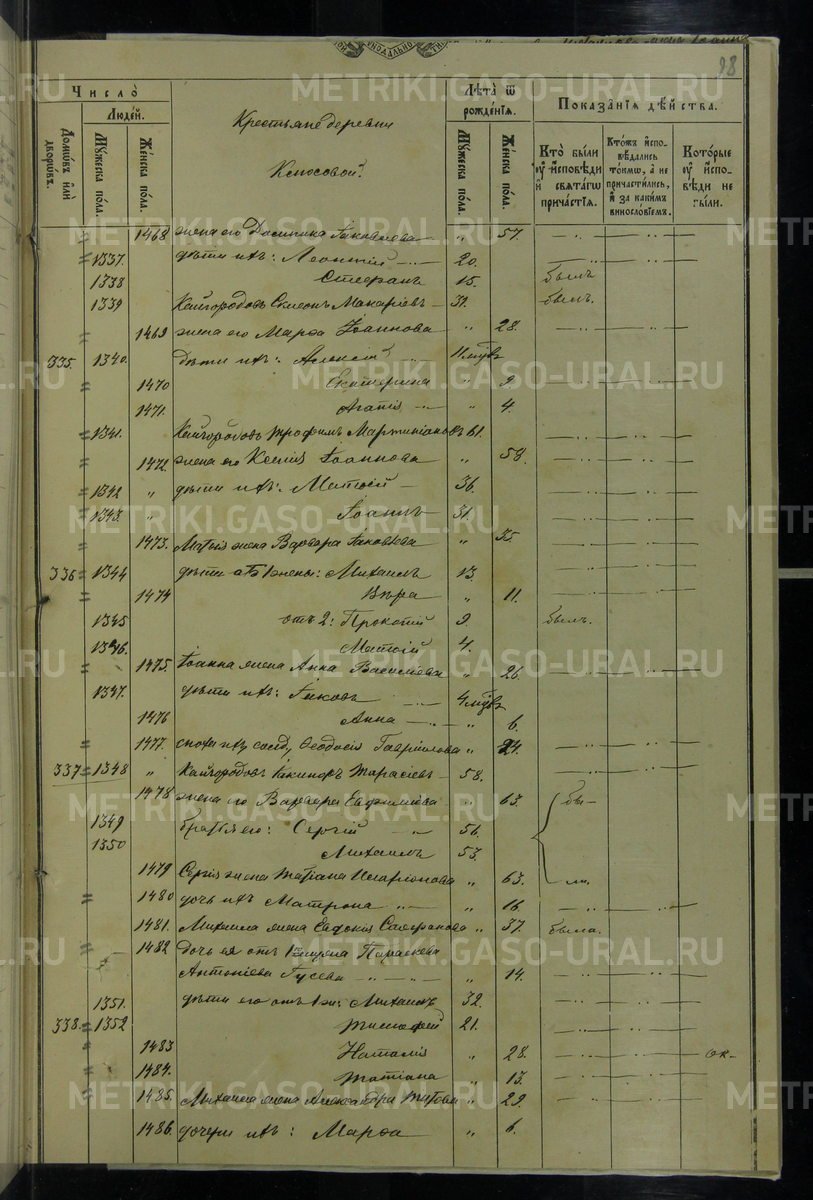 98
Число̀
Людéй.
Домѡ́въ и҆лѝ дворѡ́въ.
Мꙋжеска по́ла.
Же́нска по́ла.
Крестьяне деревни
Лѣта̀ ѿ рожде́нїѧ.
Мꙋжеска по́ла.
Же́нска по́ла.
Показа̑нїѧ дѣ́йства.
Кто̀ бы́ли ᲂу҆ и҆сповѣди и҆ свѧта́гѡ прича́стїѧ.
Кто́жъ и҆сповѣдались то́кмѡ, а҆ не причасти́лись, и҆ за каки́мъ винослов́їемъ.
Кото́рые ᲂу҆ и҆сповѣди не бы́ли.
1468 жена его Домника Іаковлева „ 57.
1337. дѣти ихъ: Леонтій 20.
1338 Стефанъ 15. былъ
1339 Кайгородовъ Симеонъ Макаріевъ 31. былъ.
1469 жена его Марѳа Іоаннова „ 28.
335. 1340. дѣти ихъ: Алексій 11 мцвъ
1470 Екатерина „ 9
1471. Агапія „ 4.
1341. Кайгородовъ Трофимъ Мартиніановъ 61.
1472. жена его Ксенія Іоаннова „ 58.
1342 „ дѣти ихъ: Матѳій 36.
1343. „ Іоаннъ 31.
1473. Матѳія жена Варвара Іаковлева „ 35.
336 1344 дѣти отъ 1 жены: Михаилъ 13.
1474 Вѣра „ 11.
1345 отъ 2: Прокопій 9. былъ.
1346. Матѳій 4.
1475. Іоанна жена Анна Василіева „ 26.
1347. дѣти ихъ: Іаковъ 4 мцвъ
1476 Анна „ 6.
1477. сноха ихъ солд. Ѳеодосія Гавриилова „ 24.
337 1348 „ Кайгородовъ Никифоръ Тарасіевъ 58.
1478 жена его Варвара Евфиміева „ 63. бы-
1349 братья его: Сергій 56.
1350 Михаилъ 53.
1479 Сергія жена Татіана Иларіонова „ 63. ли.
1480 дочь ихъ Матрона „ 16
1481. Михаила жена Евдокія Стефанова „ 37. была.
1482 дочь ея отъ 1 мужа Параскева
Антоніева Гусева „ 14.
1351. дѣти его отъ 1 ж: Михаилъ 32.
338. 1352 Тимоѳей 21.
1483 Наталія „ 28. ок-
1484. Татіана „ 13.
1485. Михаила жена Александра Титова „ 29.
1486. дочери ихъ: Марѳа „ 6.
METRIKI.GASO-URAL.RU